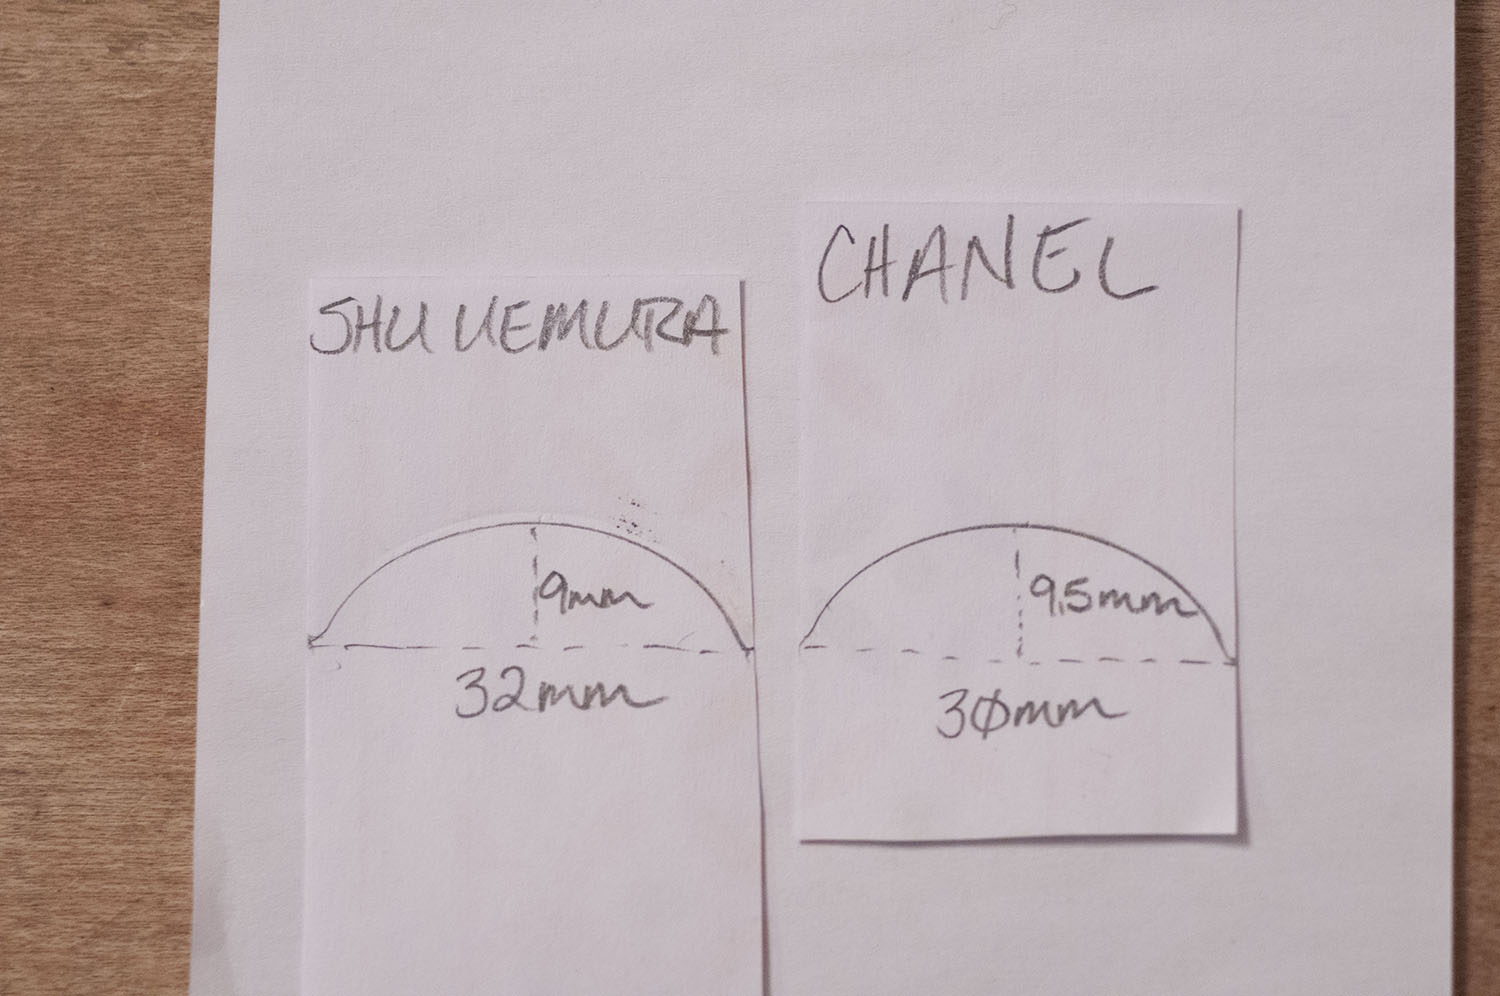 SHU UEMURA
9mm
32mm
CHANEL
9.5mm
30mm